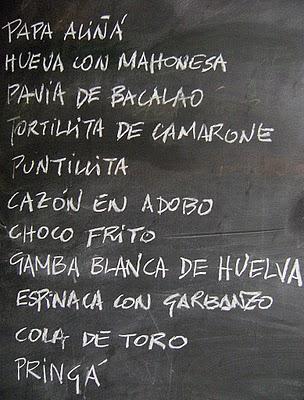 PAPA ALIÑÁ
HUEVA CON MAHONESA
PAVIA DE BACALAO
TORTILLITA DE CAMARONE
PUNTILLITA
CAZÓN EN ADOBO
CHOCO FRITO
GAMBA BLANCA DE HUELVA
ESPINACA CON GARBANZO
COLA DE TORO
PRINGÁ